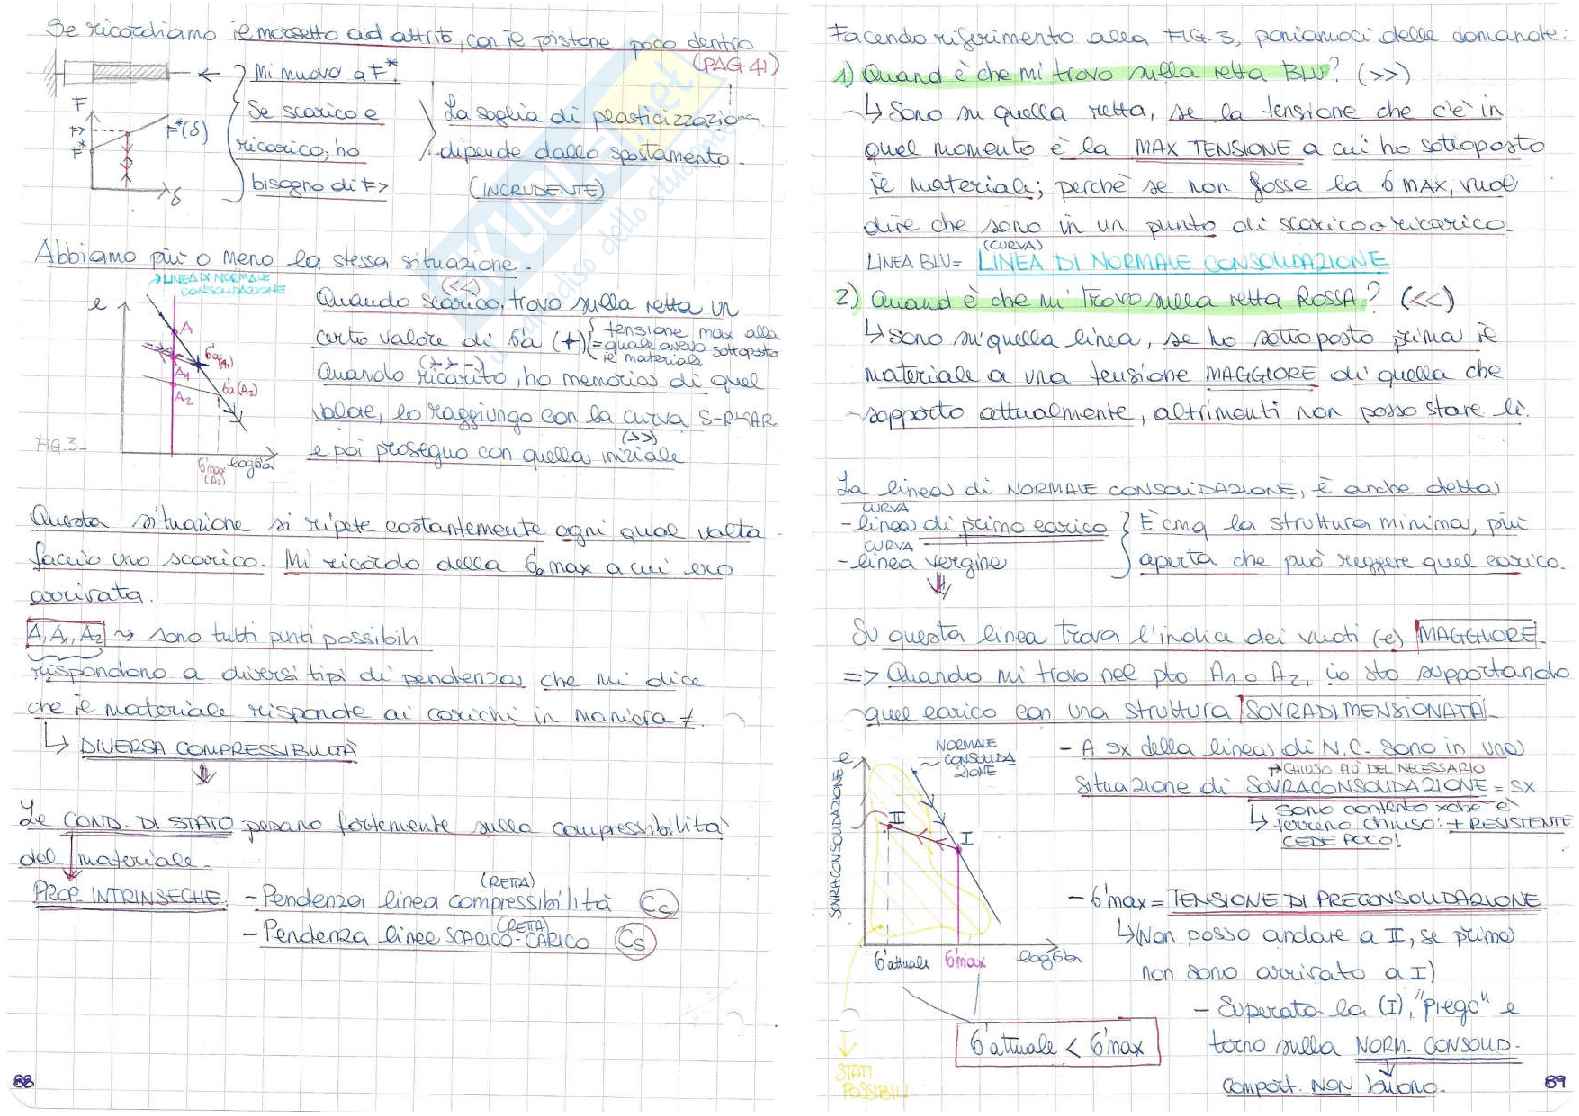 Se ricordiamo il morsetto ad attrito, con il pistone poco dentro
(PAG 41)
Mi muovo a F*.
Se scarico e
ricarico, ho
bisogno di F>
La soglia di plasticizzazione
dipende dallo spostamento.
(INCRUDENTE)
F
F>
F*
F*(δ)
δ
Abbiamo più o meno la stessa situazione.
LINEA DI NORMALE
CONSOLIDAZIONE
e
A
A1
A2
σ'a(A1)
σ'a(A2)
FIG.3-
σ'max
(A1)
logσ'a
(<<)
Quando scarico, trovo sulla retta un
certo valore di σ'a (+) = tensione max alla
quale avevo sottoposto
il materiale
Quando ricarico, ho memoria di quel
valore, lo raggiungo con la curva S-RICAR
(>>)
e poi proseguo con quella iniziale
Questa situazione si ripete costantemente ogni qual volta
faccio uno scarico. Mi ricordo della σ'a max a cui ero
arrivata.
A, A1, A2 ~> sono tutti punti possibili
rispondono a diversi tipi di pendenza, che mi dice
che il materiale risponde ai carichi in maniera ≠.
↳ DIVERSA COMPRESSIBILITÀ
Le COND. DI STATO pesano fortemente sulla compressibilità
del materiale.
PROP. INTRINSECHE
(RETTA)
- Pendenza linea compressibilità Cc
(RETTA)
- Pendenza linee SCARICO-CARICO Cs
88
Facendo riferimento alla FIG.3, poniamoci delle domande:
1) Quand'è che mi trovo sulla retta BLU? (>>)
↳ Sono su quella retta, se la tensione che c'è in
quel momento è la MAX TENSIONE a cui ho sottoposto
il materiale; perchè se non fosse la σ MAX, vuol
dire che sono in un punto di scarico o ricarico.
(CURVA)
LINEA BLU = LINEA DI NORMALE CONSOLIDAZIONE
2) Quand'è che mi trovo sulla retta ROSSA? (<<)
↳ Sono su quella linea, se ho sottoposto prima il
materiale a una tensione MAGGIORE di quella che
sopporto attualmente, altrimenti non posso stare lì.
La linea di NORMALE CONSOLIDAZIONE, è anche detta
CURVA
- linea di primo carico
CURVA
- linea vergine
È cmq la struttura minima, più
aperta che può reggere quel carico.
Su questa linea trova l'indice dei vuoti (e) MAGGIORE.
=> Quando mi trovo nel pto A1 o A2, io sto supportando
quel carico con una struttura SOVRADIMENSIONATA
SOVRACONSOLIDAZIONE
e
NORMALE
CONSOLIDA
ZIONE
II
I
σ'attuale
σ'max
logσ'a
σ'attuale < σ'max
STATI
POSSIBILI
- A sx della linea di N.C. sono in una
→ CHIUSO PIÙ DEL NECESSARIO
situazione di SOVRACONSOLIDAZIONE = SX
↳ Sono contento xchè è
terreno chiuso: + RESISTENTE
CEDE POCO!
- σ'max = TENSIONE DI PRECONSOLIDAZIONE
↳ (Non posso andare a II, se prima
non sono arrivato a I)
- Superata la (I), "piego" e
torno sulla NORM. CONSOLID.
comport. NON buono.
89